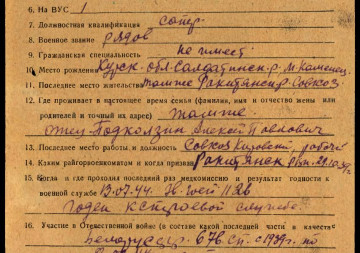 6. На ВУС 1
7. Должностная квалификация сапер.
8. Военное звание рядов
9. Гражданская специальность не имеет.
10. Место рождения Курск. обл. Солдатинск. р. М. Каменец.
11. Последнее место жительства также Ракитянский Совхоз.
12. Где проживает в настоящее время семья (фамилия, имя и отчество жены или
родителей и точный их адрес) также.
отец Подколзин Алексей Павлович
13. Последнее место работы и должность Совхоз рабоч
14. Каким райгорвоенкоматом и когда призван Ракитянск РВК
15. Когда и где проходил последний раз медкомиссию и результат годности к
военной службе 13.07.44.
Годен к строевой службе.
16. Участие в Отечественной войне (в составе какой последней части в качеств
Белорусс. 678 сп. с 1939г. по